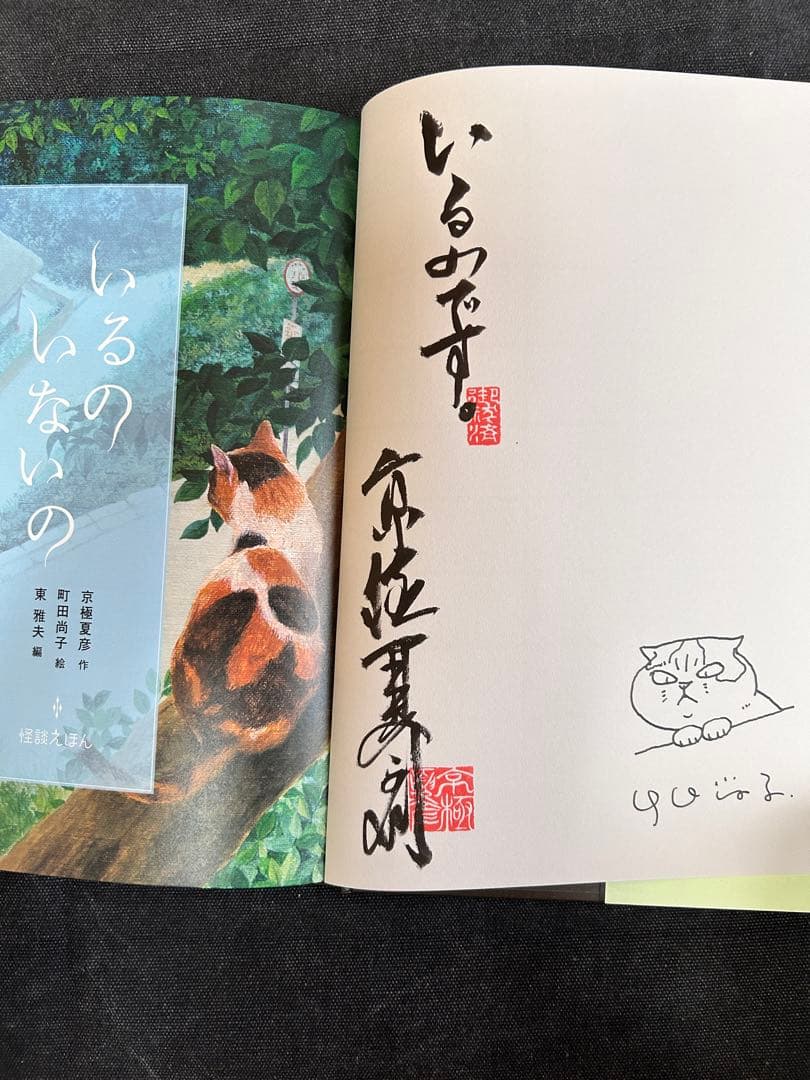 いるの
いないの
京極夏彦 作
町田尚子 絵
東 雅夫 編
怪談えほん
いるのです。
京極夏彦
京極